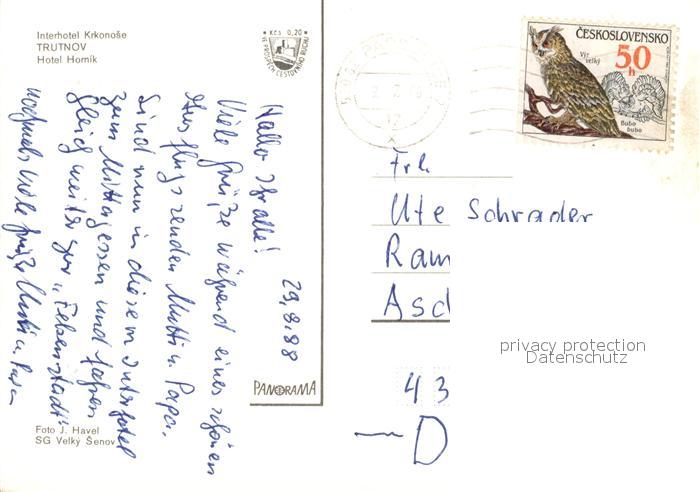 Interhotel Krkonoše
TRUTNOV
Hotel Horník
Kčs 0,20
VE PROSPĚCH CESTOVNÍHO RUCHU
ČESKOSLOVENSKO
50
h
Výr
velký
Bubo
bubo
29.8.88
Hallo Ihr alle!
Viele Grüße während eines schönen
Ausfluges senden Mutti u. Papa.
Sind nun in diesem Interhotel
zum Mittagessen und fahren
gleich weiter zur „Felsenstadt"
nochmals viele Grüße Mutti u. Papa
Frl.
Ute Schrader
Ram
Asd
43
— D
PANORAMA
Foto J. Havel
SG Velký Šenov
privacy protection
Datenschutz